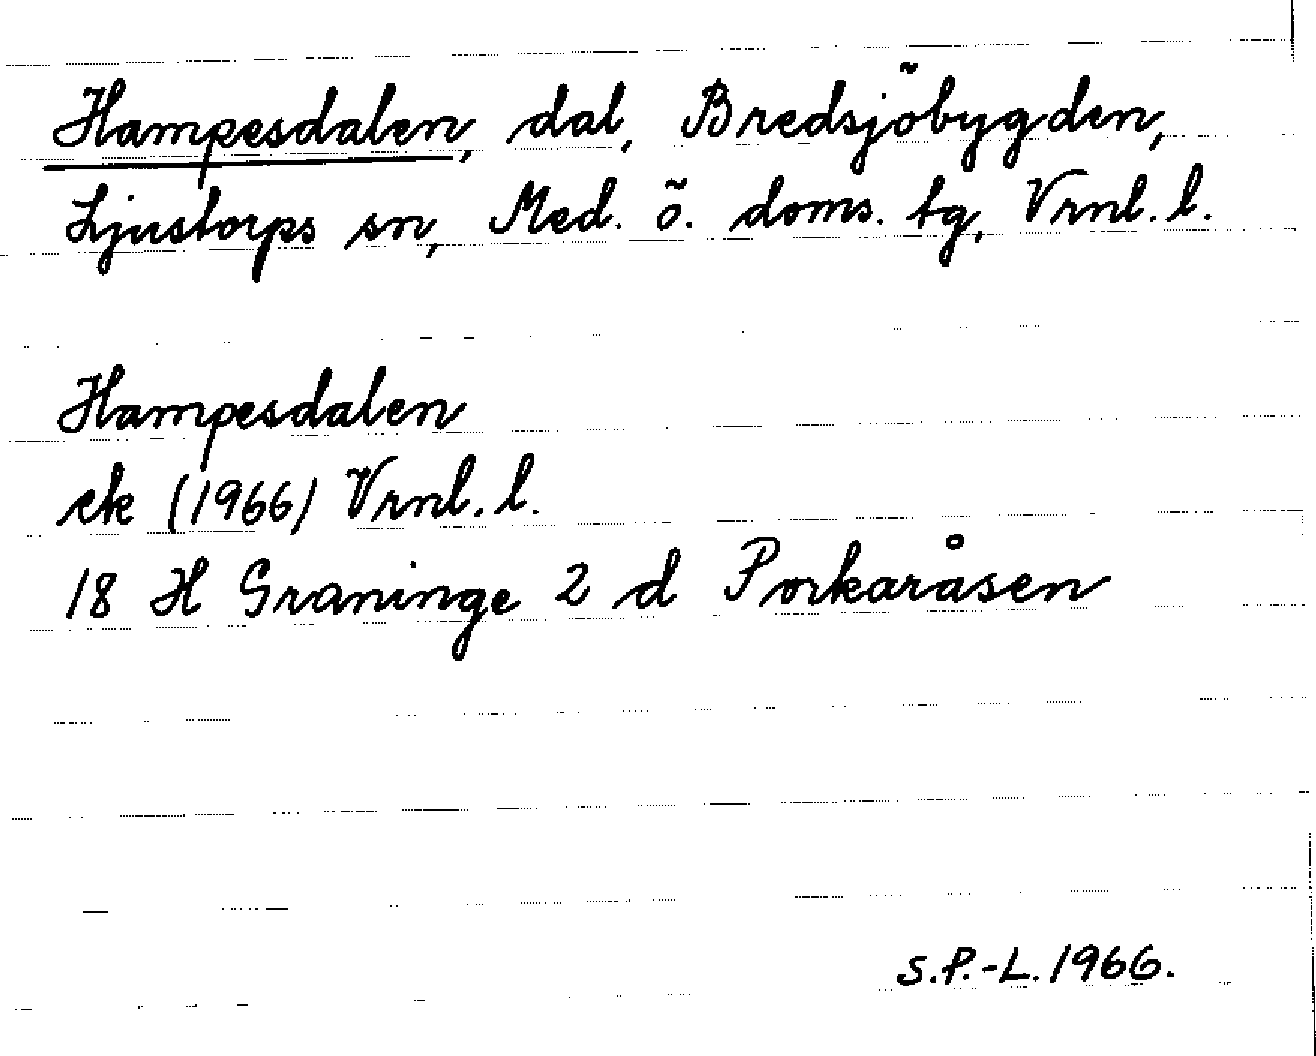 Hampesdalen, dal, Bredsjöbygden,
Ljustorps sn, Med. ö. doms. tg, Vrnl. l.
Hampesdalen
ek (1966) Vrnl. l.
18 H Graninge 2 d Porkaråsen
S.P.-L. 1966.